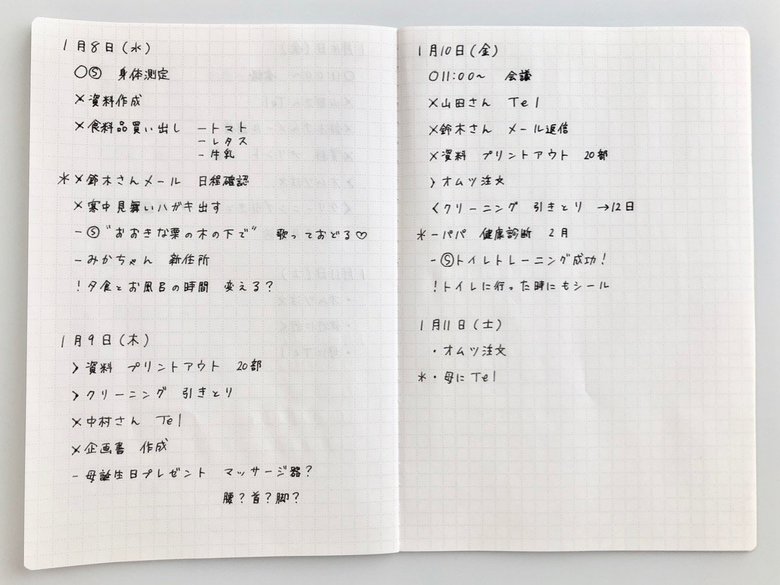 1月8日(水)
○Ⓢ 身体測定
×資料作成
×食料品買い出し −トマト
−レタス
−牛乳
*×鈴木さんメール 日程確認
×寒中見舞いハガキ出す
−Ⓢ"おおきな栗の木の下で" 歌っておどる♡
−みかちゃん 新住所
!夕食とお風呂の時間 変える?
1月9日(木)
>資料 プリントアウト 20部
>クリーニング 引きとり
×中村さん Tel
×企画書 作成
−母誕生日プレゼント マッサージ器?
腰?首?脚?
1月10日(金)
○11:00〜 会議
×山田さん Tel
×鈴木さん メール返信
×資料 プリントアウト 20部
>オムツ注文
<クリーニング 引きとり →12日
*−パパ 健康診断 2月
−Ⓢトイレトレーニング成功!
!トイレに行った時にもシール
1月11日(土)
・オムツ注文
*・母にTel